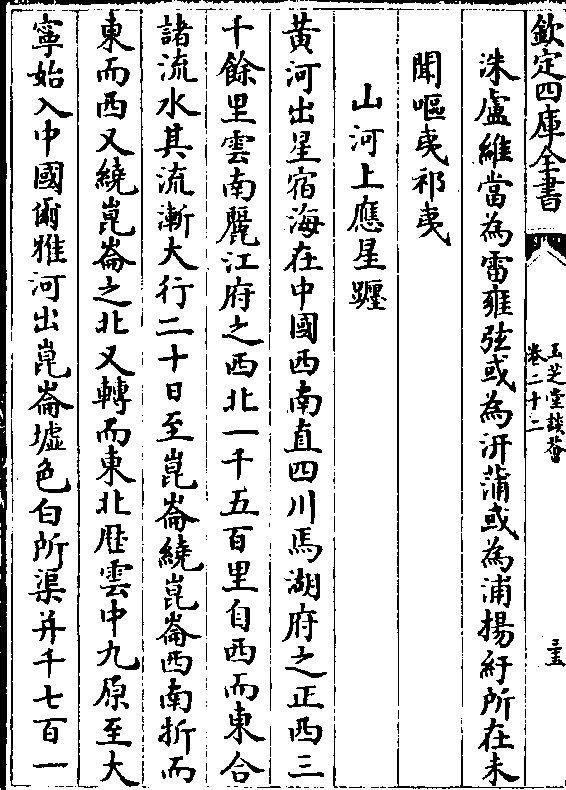 欽定四庫全書
玉芝堂談薈
卷二十二
三五
洙盧維當為雷雍弦或為汧蒲或為浦揚紆所在未
聞嘔夷祁夷
山河上應星躔
黃河出星宿海在中國西南直四川馬湖府之正西三
千餘里雲南麗江府之西北一千五百里自西而東合
諸流水其流漸大行二十日至崑崙繞崑崙西南折而
東而西又繞崑崙之北又轉而東北歴雲中九原至大
寧始入中國爾雅河出崑崙墟色白所渠并千七百一